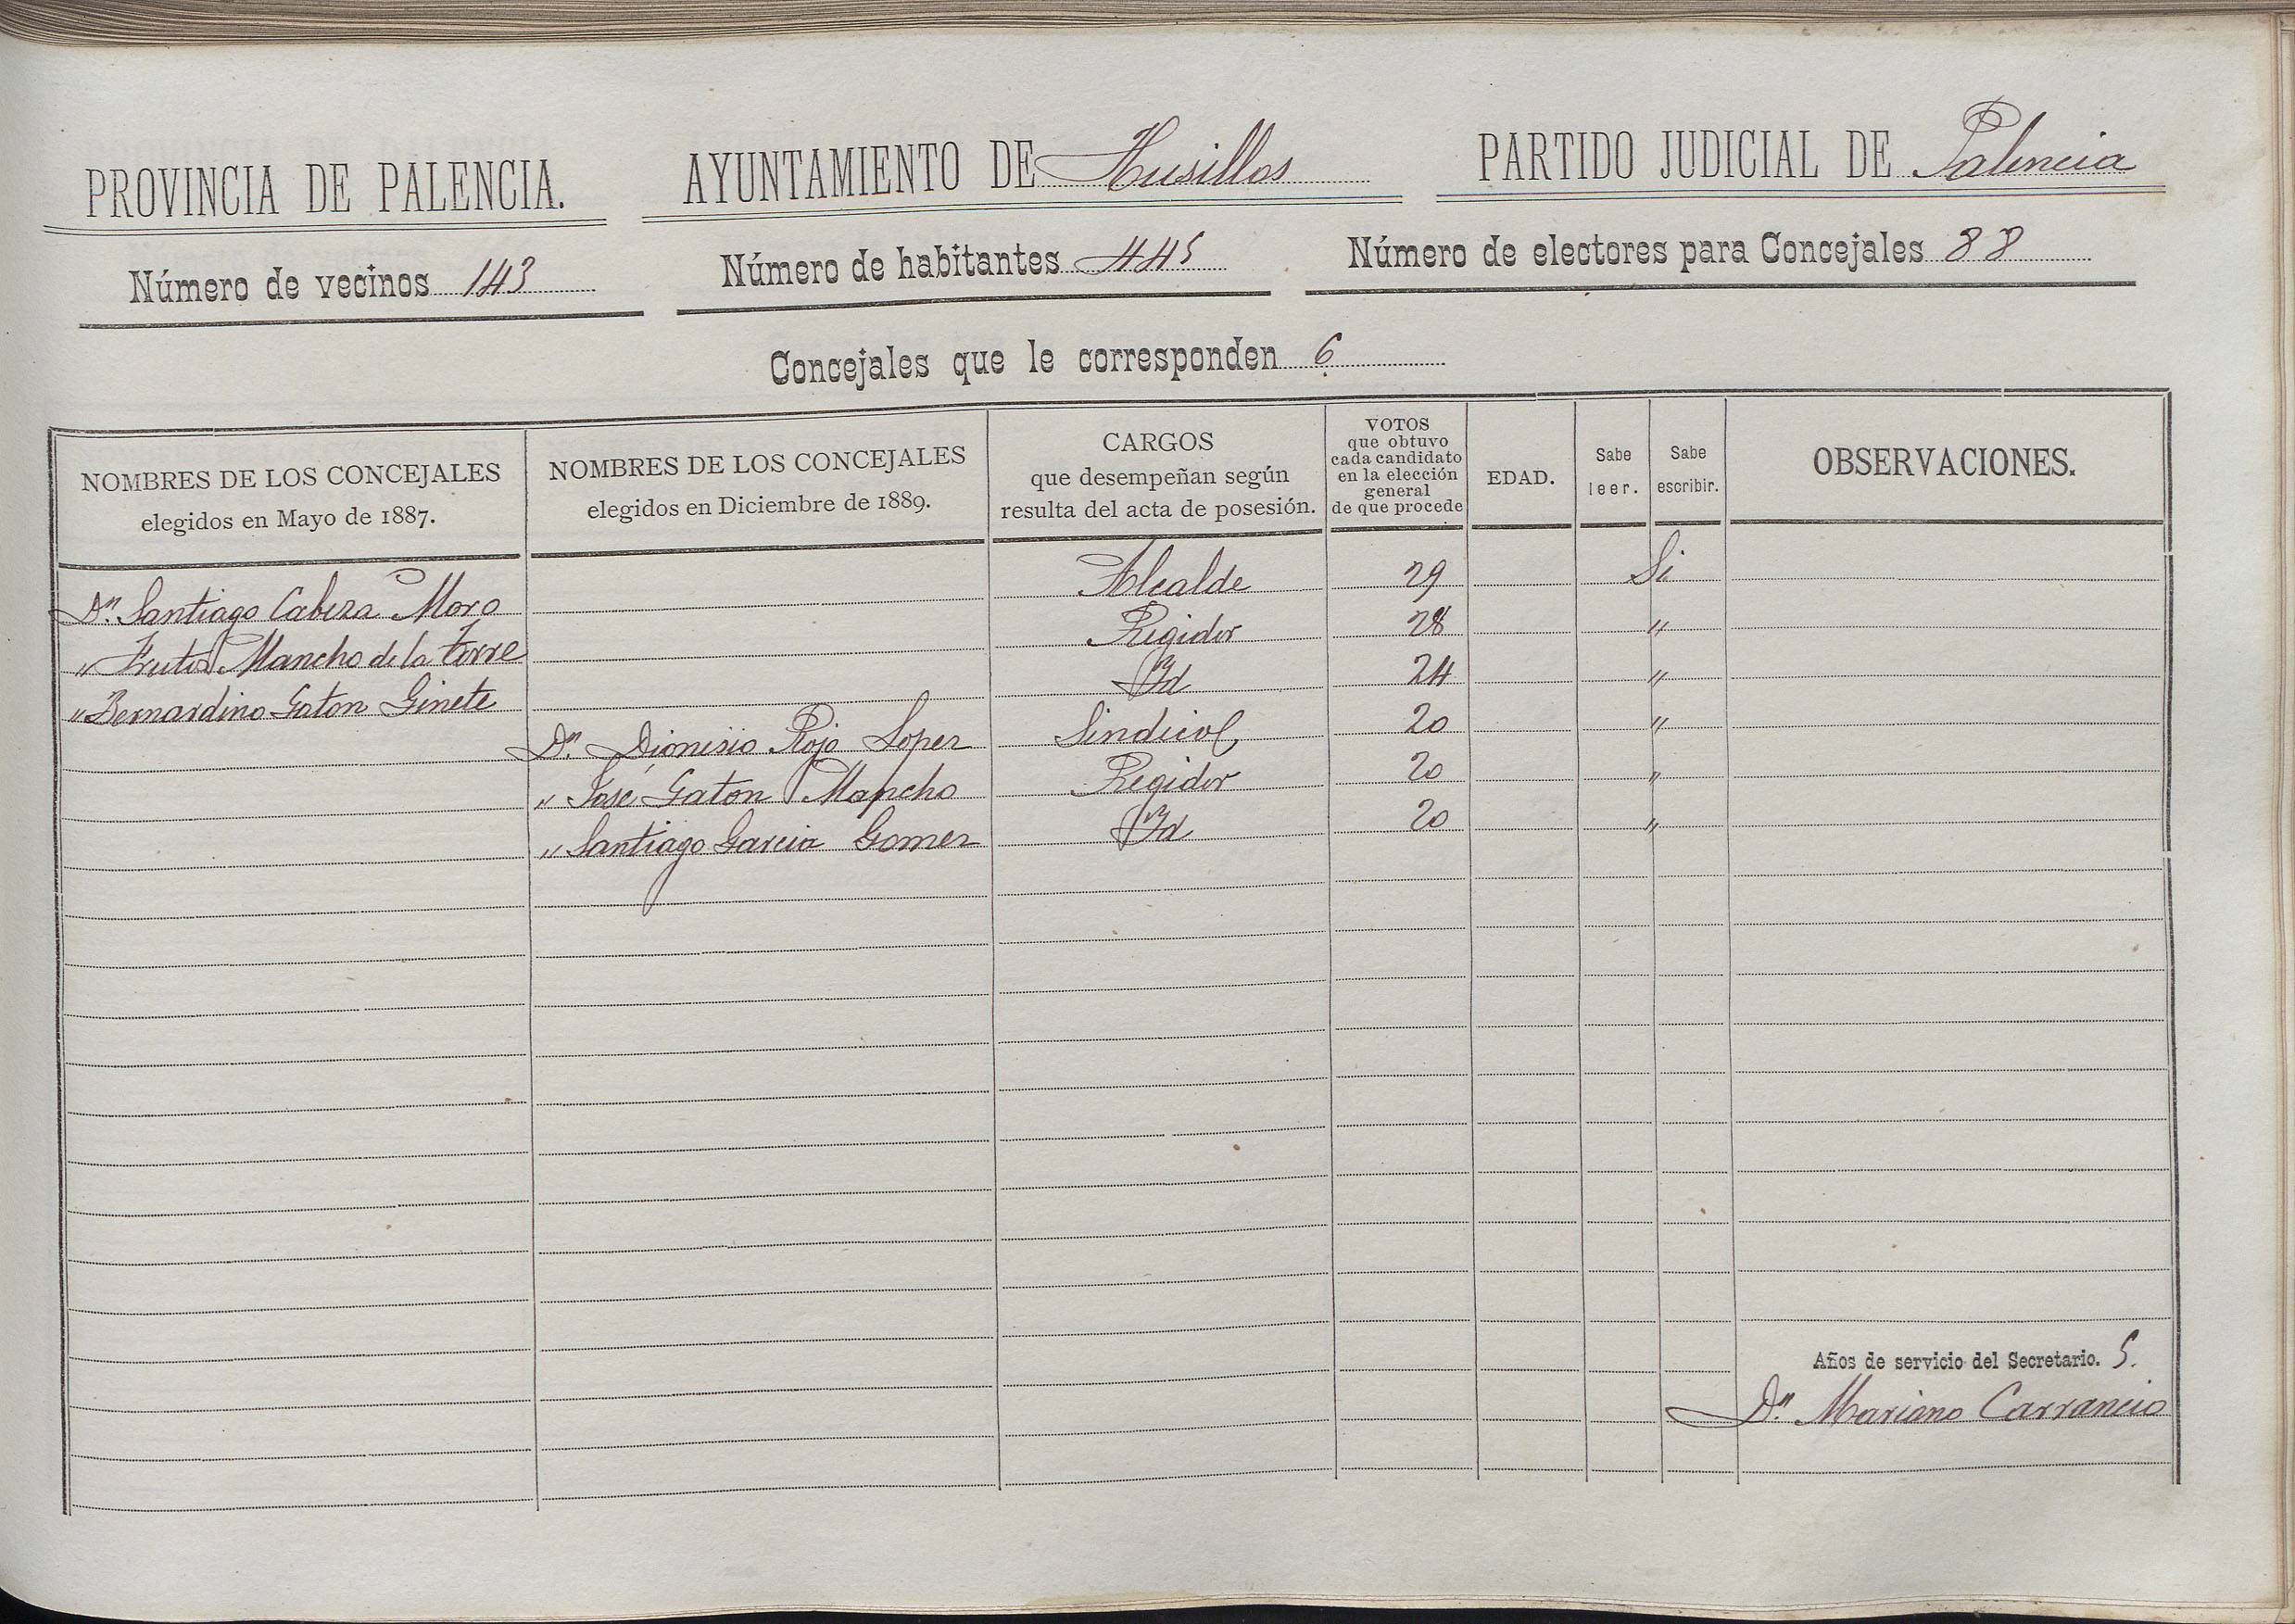 PROVINCIA DE PALENCIA. AYUNTAMIENTO DE Husillos PARTIDO JUDICIAL DE Palencia
Número de vecinos 143 Número de habitantes 445 Número de electores para Concejales 88
Concejales que le corresponden 6
NOMBRES DE LOS CONCEJALES elegidos en Mayo de 1887. NOMBRES DE LOS CONCEJALES elegidos en Diciembre de 1889. CARGOS que desempeñan según resulta del acta de posesión. VOTOS que obtuvo cada candidato en la elección general de que procede EDAD. Sabe leer. Sabe escribir. OBSERVACIONES.
Dn. Santiago Cabeza Moro Alcalde 29 Si
" Frutos Mancho de la Torre Regidor 28 "
" Bernardino Gaton Ginete Id 24 "
Dn. Dionisio Rojo Lopez Sindico 20 "
" José Gaton Mancho Regidor 20 "
" Santiago Garcia Gomez Id 20 "
Años de servicio del Secretario. 5.
Dn. Mariano Carrancio